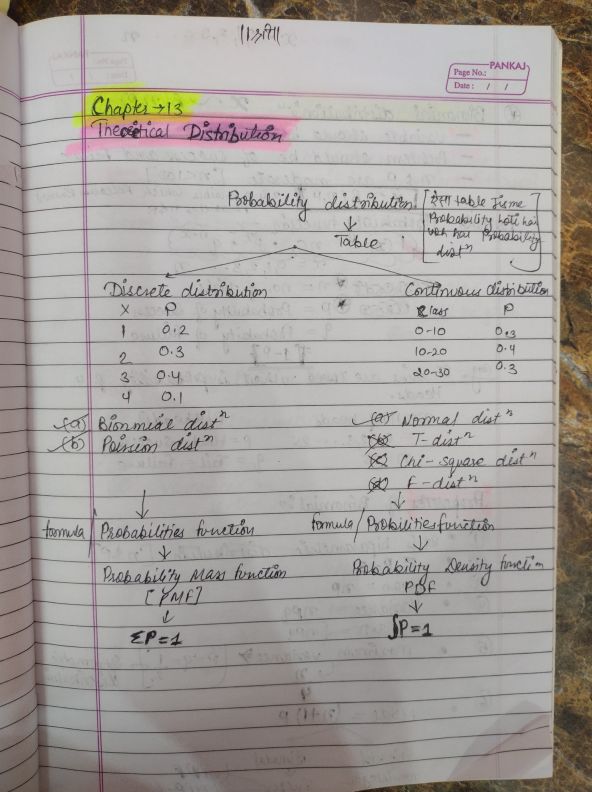 ||श्री||
PANKAJ
Page No.:
Date: / /
Chapter → 13
Theoretical Distribution
Probability distribution [ऐसा table jisme
Probability hoti hai
woh hai Probability
distⁿ]
↓
Table
Discrete distribution Continuous distribution
X P Class P
1 0.2 0-10 0.3
2 0.3 10-20 0.4
3 0.4 20-30 0.3
4 0.1
(a) Bionmial distⁿ (a) Normal distⁿ
(b) Poision distⁿ (b) T-distⁿ
(c) Chi-square distⁿ
(d) F-distⁿ
↓ ↓
formula/ Probabilities function formula/ Probilities function
↓ ↓
Probability Mass function Probability Density function
[PMF] PDF
↓ ↓
ΣP=1 ∫P=1